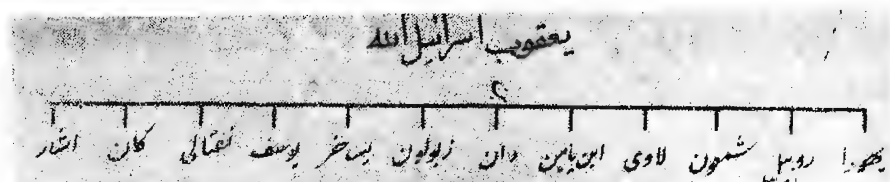 يعقوب اسرائيل الله
٢
يهودا روبيل شمعون لاوى ابن يامين دان زبولون يسخر يوسف نفتالى كان اشار